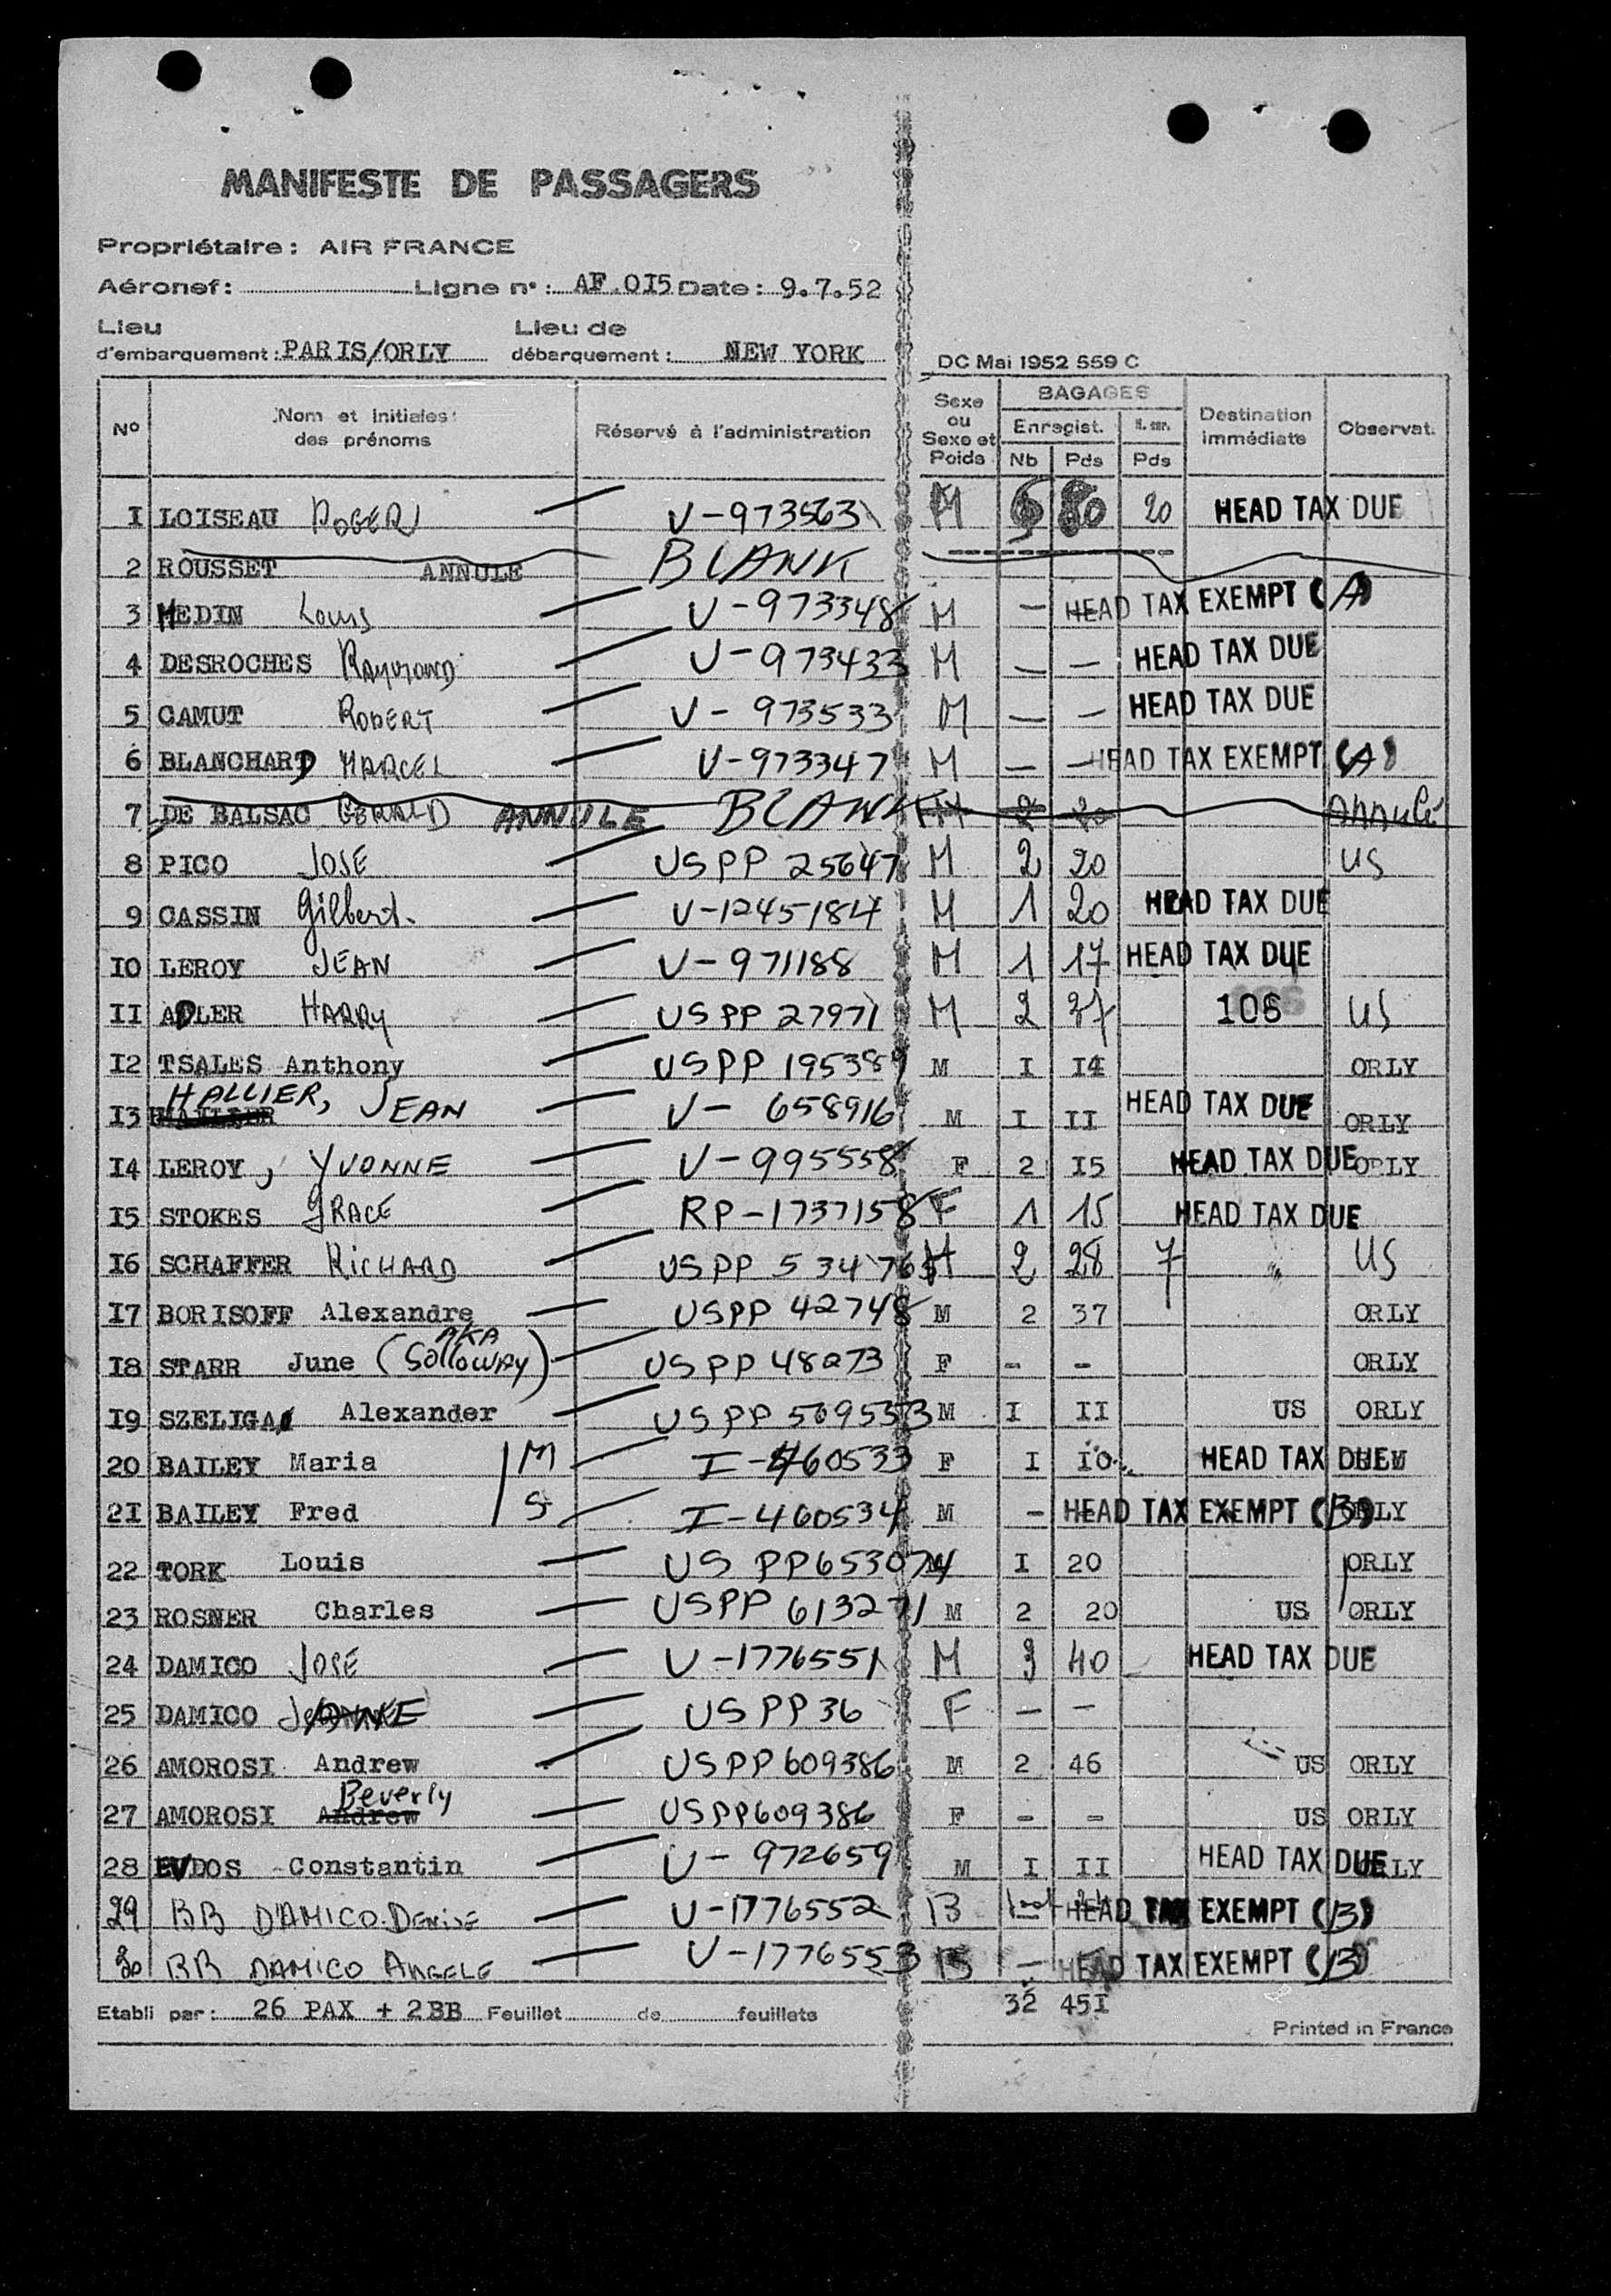 MANIFESTE DE PASSAGERS
Propriétaire : AIR FRANCE
Aéronef : Ligne n° : AF.OI5 Date : 9.7.52
Lieu d'embarquement : PARIS/ORLY Lieu de débarquement : NEW YORK
DC Mai 1952 559 C
N° Nom et initiales des prénoms Réservé à l'administration Sexe ou Sexe et Poids BAGAGES Enregist. Nb Pds Pds Destination immédiate Observat.
I LOISEAU ROGER V-973563 M 80 20 HEAD TAX DUE
2 ROUSSET ANNULE BLANK
3 MEDIN Louis V-973348 M — HEAD TAX EXEMPT (A)
4 DESROCHES RAYMOND V-973433 M — — HEAD TAX DUE
5 CAMUT ROBERT V-973533 M — — HEAD TAX DUE
6 BLANCHARD MARCEL V-973347 M — — HEAD TAX EXEMPT (A)
7 DE BALSAC GERALD ANNULE BLANK M 2 20 Annulé
8 PICO JOSE USPP 25647 M 2 20 US
9 CASSIN Gilbert. V-1245184 M 1 20 HEAD TAX DUE
IO LEROY JEAN V-971188 M 1 17 HEAD TAX DUE
II ADLER HARRY USPP 27971 M 2 37 106 US
I2 TSALES Anthony USPP 195389 M I I4 ORLY
I3 HALLIER, JEAN V-658916 M I II HEAD TAX DUE ORLY
I4 LEROY, YVONNE V-995558 F 2 I5 HEAD TAX DUE ORLY
I5 STOKES GRACE RP-1737158 F 1 15 HEAD TAX DUE
I6 SCHAFFER RICHARD USPP 534765 M 2 28 7 " US
I7 BORISOFF Alexandre USPP 42748 M 2 37 ORLY
I8 STARR June (AKA SolloWAY) USPP 48273 F - - ORLY
I9 SZELIGA Alexander USPP 509533 M I II US ORLY
20 BAILEY Maria M I-460533 F I IO HEAD TAX DUE
2I BAILEY Fred S I-460534 M - HEAD TAX EXEMPT (B) ORLY
22 TORK Louis US PP653074 M I 20 ORLY
23 ROSNER Charles USPP 613271 M 2 20 US ORLY
24 DAMICO JOSE V-1776551 M 3 40 HEAD TAX DUE
25 DAMICO USPP 36 F — —
26 AMOROSI Andrew USPP 609386 M 2 46 US ORLY
27 AMOROSI Andrew Beverly USPP609386 F - - US ORLY
28 EVDOS Constantin V-972659 M I II HEAD TAX DUE ORLY
29 BB D'AMICO DENISE V-1776552 B HEAD TAX EXEMPT (B)
30 BB DAMICO ANGELE V-1776553 B — HEAD TAX EXEMPT (B)
Etabli par : 26 PAX + 2BB Feuillet de feuillets 32 45I
Printed in France